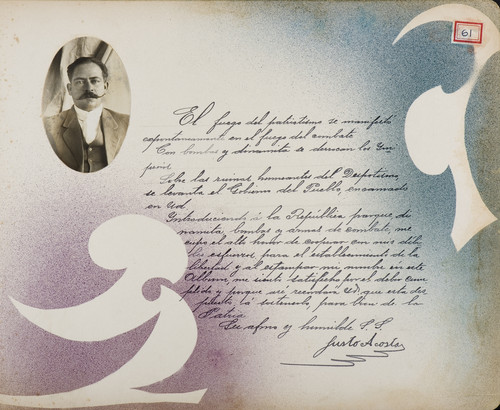 61
El fuego del patriotismo se manifestó
espontaneamente en el fuego del combate
Con bombas y dinamita se derrocan los Im
perios
Sobre las ruinas humeantes del Despotismo,
se levanta el Gobierno del Pueblo, encarnado
en Ud.
Introduciendo á la República parque, di
namita, bombas y armas de combate, me
cupo el alto honor de cooperar con mis débi
les esfuerzos para el establecimiento de la
libertad, y al estampar mi nombre en este
Album, me siento satisfecho por el deber cum
plido y porque así recordará Ud. que esta dis
puesto á sostenerlo, para bien de la
Patria
Su afmo y humilde S. S.
Justo Acosta